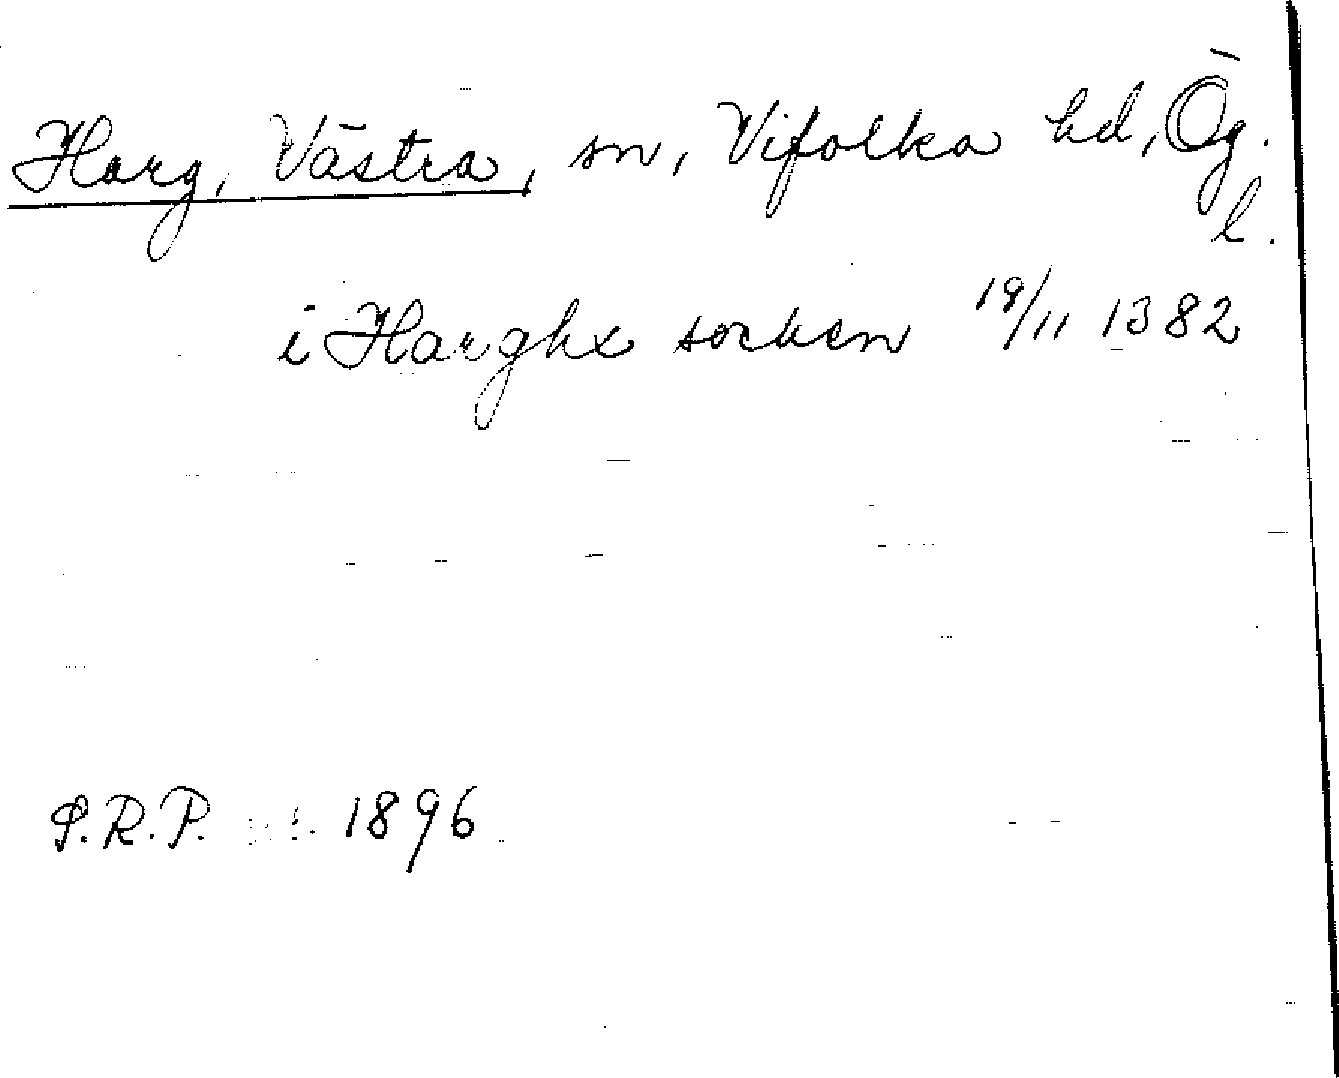 Harg, Västra, sn, Vifolka hd, Ög.
l.
i Harghx socken 19/11 1382
S.R.P. 1896